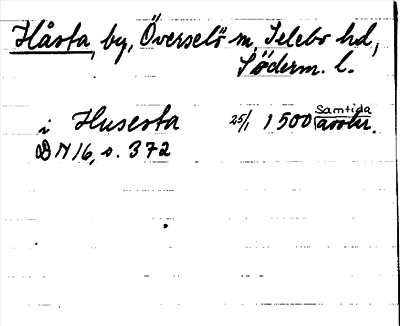 Håsta, by, Överselö sn, Selebo hd,
Söderm. l.
i Husesta 25/1 1500 Samtida avskr.
DN 16, s. 372